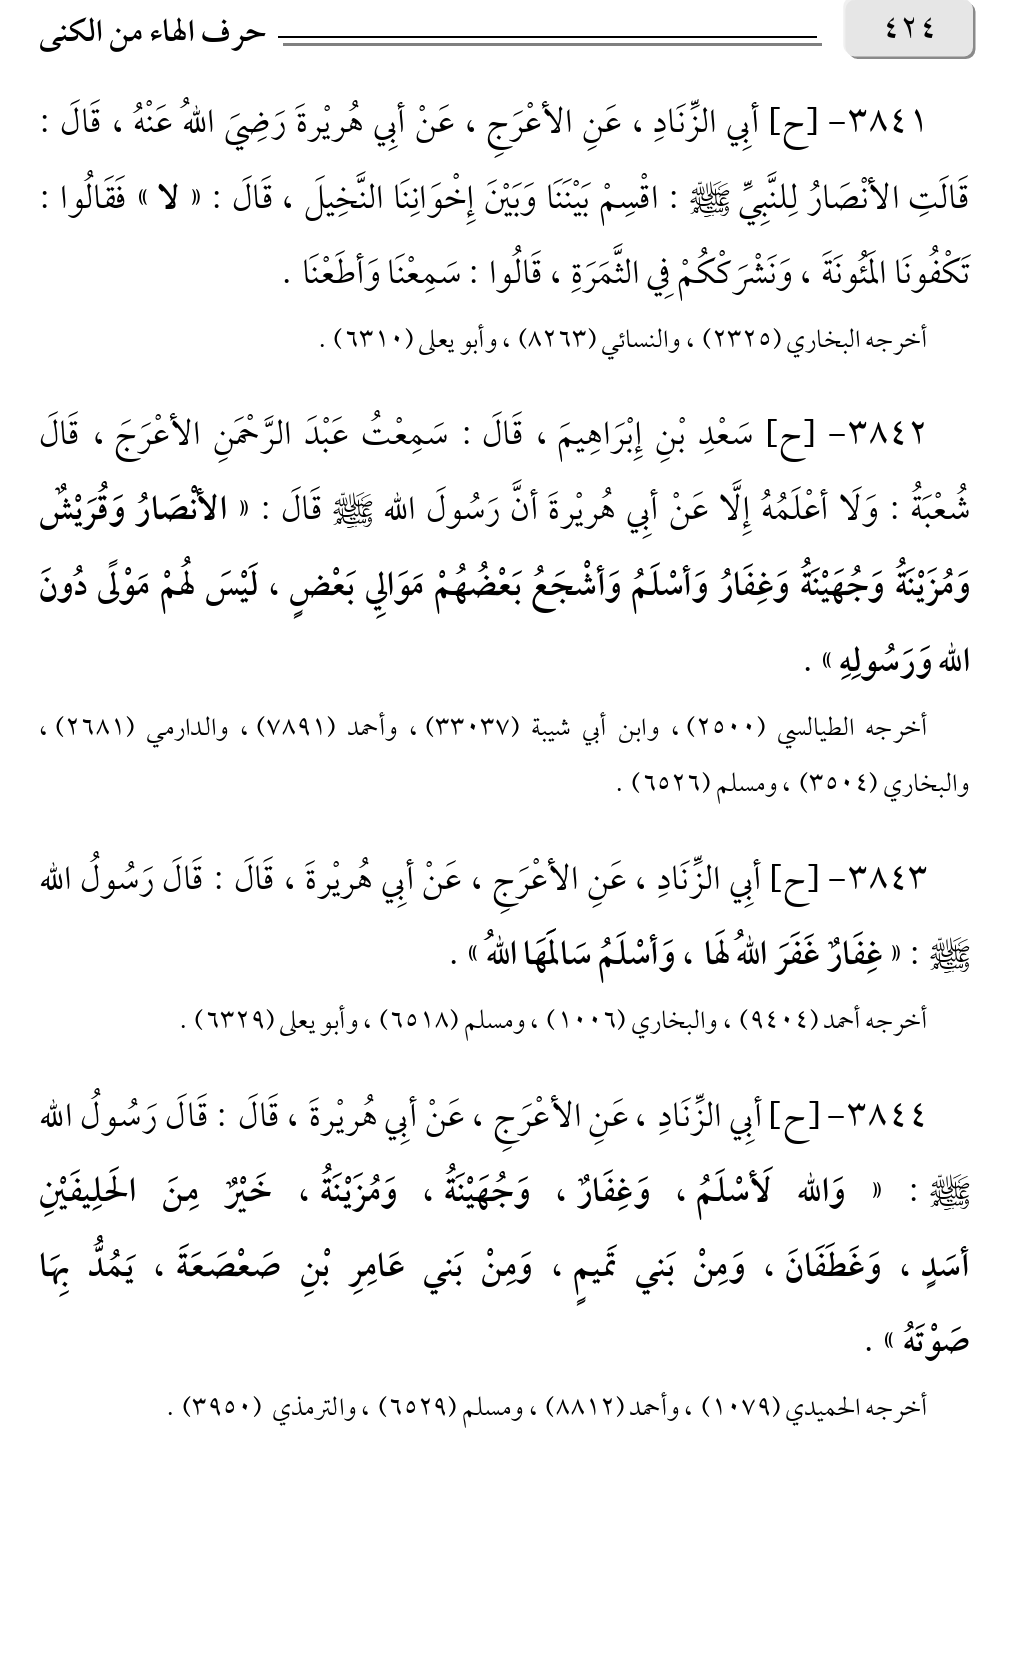 ٤٢٤
حرف الهاء من الكنى
٣٨٤١- [ح] أَبِي الزِّنَادِ ، عَنِ الأَعْرَجِ ، عَنْ أَبِي هُرَيْرةَ رَضِيَ اللهُ عَنْهُ ، قَالَ :
قَالَتِ الأَنْصَارُ لِلنَّبِيِّ ﷺ : اقْسِمْ بَيْنَنَا وَبَيْنَ إِخْوَانِنَا النَّخِيلَ ، قَالَ : « لا » فَقَالُوا :
تَكْفُونَا المَئُونَةَ ، وَنَشْرَكْكُمْ فِي الثَّمَرَةِ ، قَالُوا : سَمِعْنَا وَأَطَعْنَا .
أخرجه البخاري (٢٣٢٥) ، والنسائي (٨٢٦٣) ، وأبو يعلى (٦٣١٠) .
٣٨٤٢- [ح] سَعْدِ بْنِ إِبْرَاهِيمَ ، قَالَ : سَمِعْتُ عَبْدَ الرَّحْمَنِ الأَعْرَجَ ، قَالَ
شُعْبَةُ : وَلَا أَعْلَمُهُ إِلَّا عَنْ أَبِي هُرَيْرةَ أَنَّ رَسُولَ الله ﷺ قَالَ : « الأَنْصَارُ وَقُرَيْشٌ
وَمُزَيْنَةُ وَجُهَيْنَةُ وَغِفَارُ وَأَسْلَمُ وَأَشْجَعُ بَعْضُهُمْ مَوَالِي بَعْضٍ ، لَيْسَ لَهُمْ مَوْلًى دُونَ
الله وَرَسُولِهِ » .
أخرجه الطيالسي (٢٥٠٠) ، وابن أبي شيبة (٣٣٠٣٧) ، وأحمد (٧٨٩١) ، والدارمي (٢٦٨١) ،
والبخاري (٣٥٠٤) ، ومسلم (٦٥٢٦) .
٣٨٤٣- [ح] أَبِي الزِّنَادِ ، عَنِ الأَعْرَجِ ، عَنْ أَبِي هُرَيْرةَ ، قَالَ : قَالَ رَسُولُ الله
ﷺ : « غِفَارٌ غَفَرَ اللهُ لَهَا ، وَأَسْلَمُ سَالَمَهَا اللهُ » .
أخرجه أحمد (٩٤٠٤) ، والبخاري (١٠٠٦) ، ومسلم (٦٥١٨) ، وأبو يعلى (٦٣٢٩) .
٣٨٤٤- [ح] أَبِي الزِّنَادِ ، عَنِ الأَعْرَجِ ، عَنْ أَبِي هُرَيْرةَ ، قَالَ : قَالَ رَسُولُ الله
ﷺ : « وَالله لَأَسْلَمُ ، وَغِفَارٌ ، وَجُهَيْنَةُ ، وَمُزَيْنَةُ ، خَيْرٌ مِنَ الحَلِيفَيْنِ
أَسَدٍ ، وَغَطَفَانَ ، وَمِنْ بَني تَميمٍ ، وَمِنْ بَني عَامِرِ بْنِ صَعْصَعَةَ ، يَمُدُّ بِهَا
صَوْتَهُ » .
أخرجه الحميدي (١٠٧٩) ، وأحمد (٨٨١٢) ، ومسلم (٦٥٢٩) ، والترمذي (٣٩٥٠) .